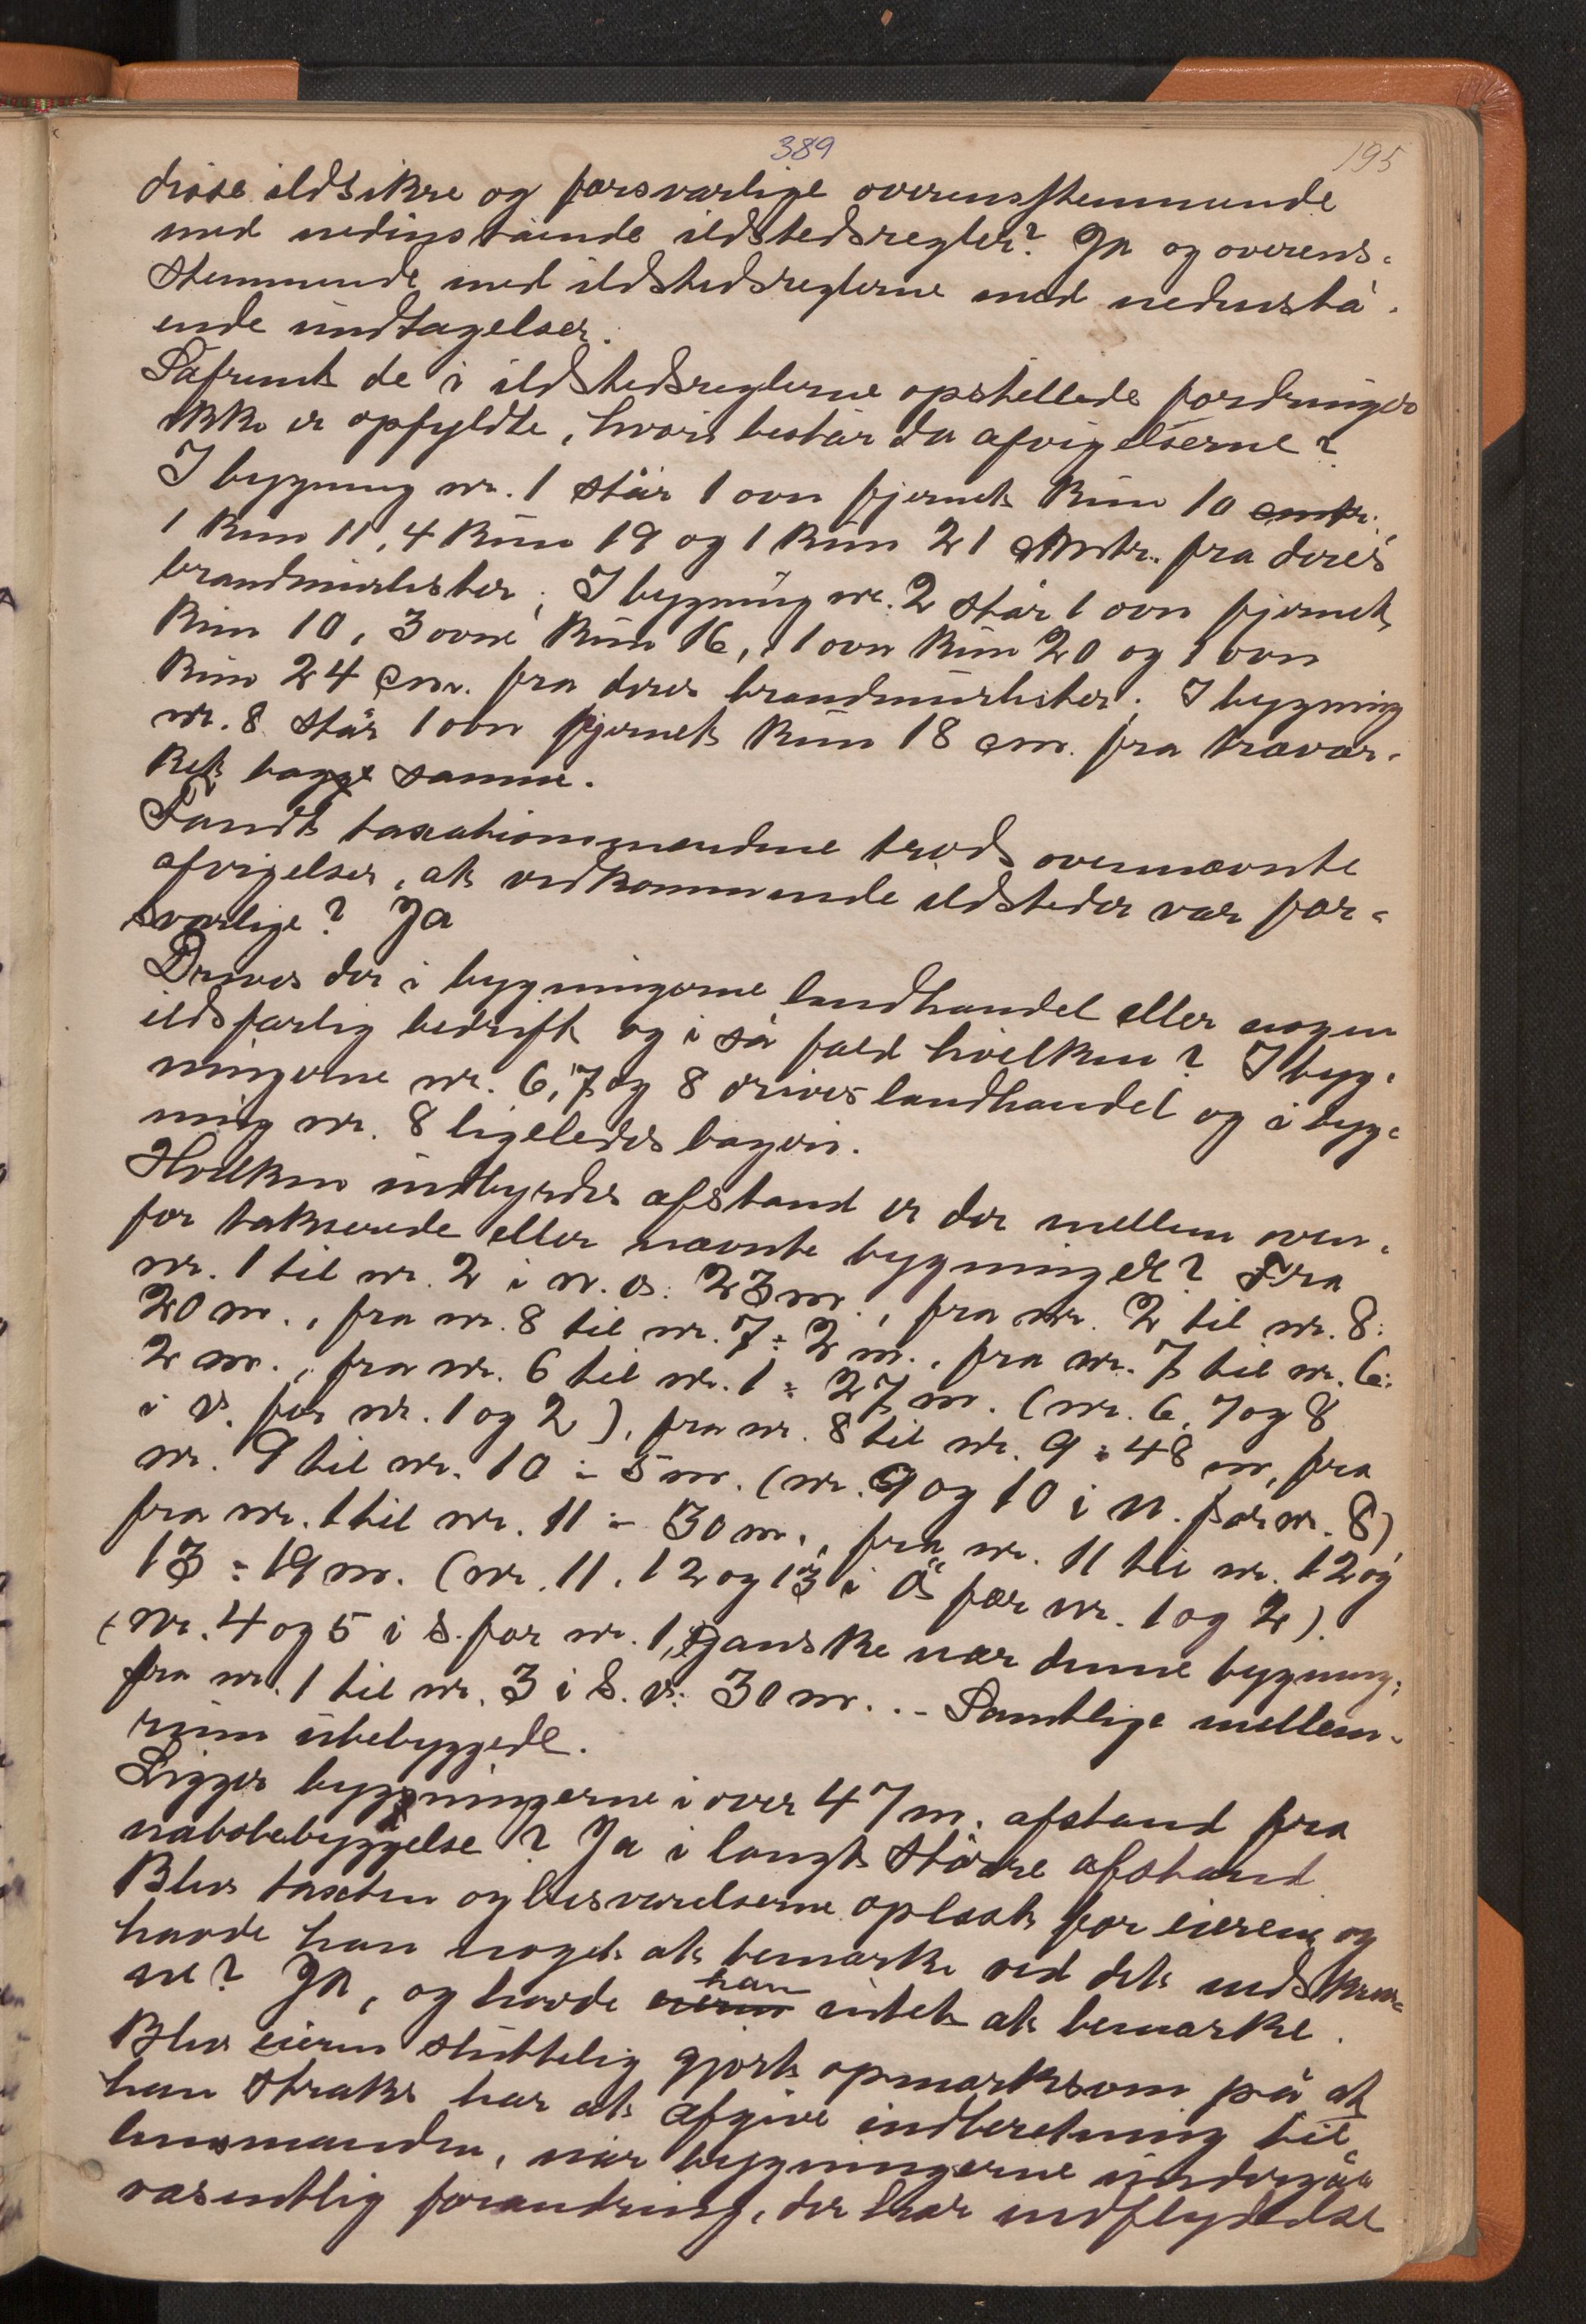 389
195
disse ildsikre og forsvarlige overensstemmende
med nedenstående ildstedsregler? Ja og overens-
stemmende med ildstedsreglerne med nedenstå-
ende undtagelser.
Såfremt de i ildstedsreglerne opstillede fordringer
ikke er opfyldte, hvori består da afvigelserne?
I bygning nr. 1 står 1 ovn fjernet kun 10 cmtr.,
1 kun 11, 4 kun 19 og 1 kun 21 cmtr. fra deres
brandmurlister; I bygning nr. 2 står 1 ovn fjernet
kun 10, 3 ovne kun 16, 1 ovn kun 20 og 1 ovn
kun 24 cm. fra deres brandmurlister; I bygning
nr. 8 står 1 ovn fjernet kun 18 cm. fra trævær-
ket bagge samme.
Fandt taxationsmændene trods ovennævnte
afvigelser, at vedkommende ildsteder var for-
svarlige? Ja
Drives der i bygningerne landhandel eller nogen
ildsfarlig bedrift og i så fald hvilken? I byg-
ningerne nr. 6, 7 og 8 drives landhandel og i byg-
ning nr. 8 ligeledes bageri.
Hvilken indbyrdes afstand er der mellem oven-
for takserede eller nævnte bygninger? Fra
nr. 1 til nr. 2 i n. ö: 23 m., fra nr. 2 til nr. 8:
20 m., fra nr. 8 til nr. 7: 2 m., fra nr. 7 til nr. 6:
2 m., fra nr. 6 til nr. 1: 27 m. (nr. 6, 7 og 8
i v. for nr. 1 og 2), fra nr. 8 til nr. 9: 48 m, fra
nr. 9 til nr. 10 : 5 m. (nr. 9 og 10 i n. for nr. 8),
fra nr. 1 til nr. 11 : 30 m., fra nr. 11 til nr. 12 og
13 : 19 m. (nr. 11, 12 og 13 i ö for nr. 1 og 2).
(nr. 4 og 5 i s. for nr. 1, ganske nær denne bygning;
fra nr. 1 til nr. 3 i s. v: 30 m. . - Samtlige mellem-
rum ubebyggede.
Ligger bygningerne i over 47 m. afstand fra
nabobebyggelse? Ja i langt større afstand
Blev taxten og besvarelserne oplæst for eieren og
havde han noget at bemærke ved det nedskrev-
ne? Ja, og havde eieren han intet at bemærke.
Blev eieren sluttelig gjort opmærksom på at
han straks har at afgive indberetning til
lensmanden, når bygningerne undergår
væsentlig forandring, der har indflydelse